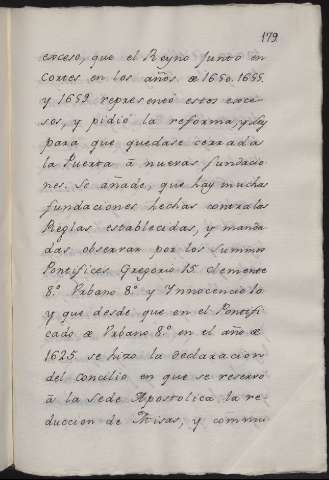 179
exceso, que el Reyno junto en
cortes en los años de 1650. 1655.
y 1659 representó estos exce-
sos, y pidió la reforma, y Ley
para que quedase cerrada
la Puerta à nuevas fundacio
nes. Se añade, que hay muchas
fundaciones hechas contra las
Reglas establecidas, y manda
das observar por los Summos
Pontifices Gregorio 15. Clemente
8.º Urbano 8.º y Innocencio 10
y que desde que en el Pontifi
cado de Urbano 8.º en el año de
1625 se hizo la declaracion
del concilio en que se reservó
à la Sede Apostolica la re-
duccion de Misas, y commu